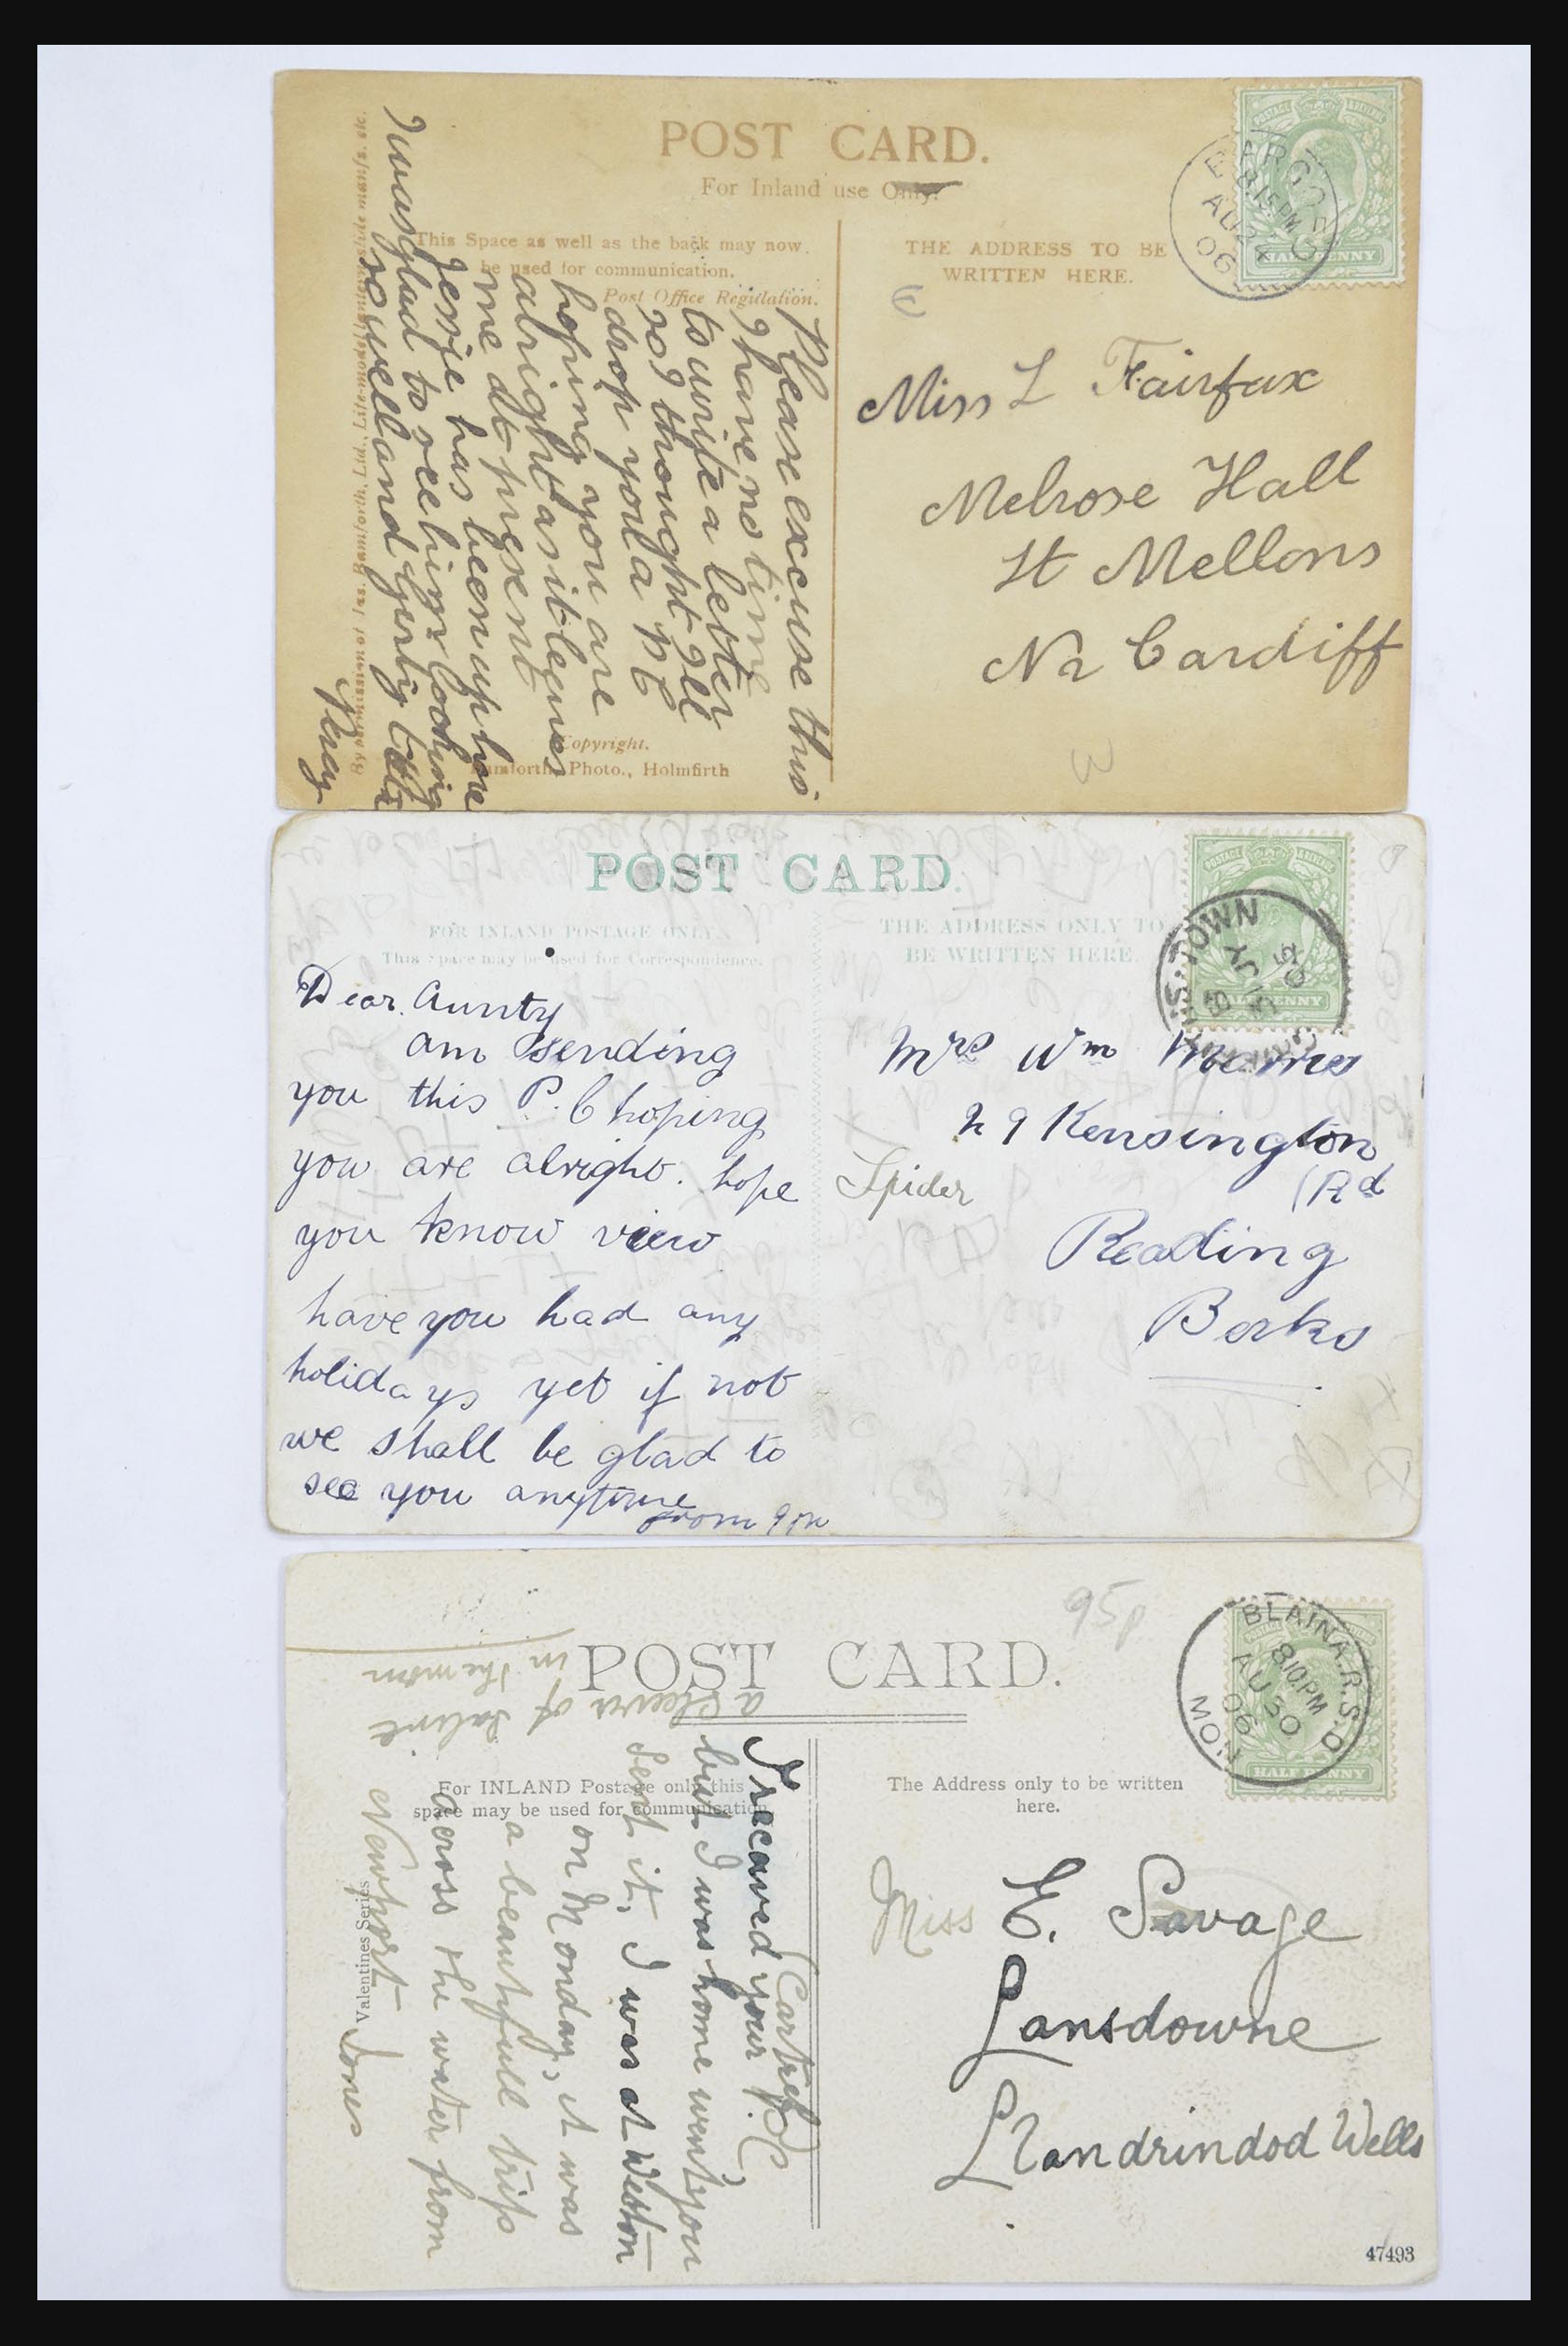 POST CARD.
For Inland use Only.
This Space as well as the back may now
be used for communication.
Post Office Regulation.
THE ADDRESS TO BE
WRITTEN HERE.
HALFPENNY
8.15 PM
AU 24
06
Miss L Fairfax
Melrose Hall
St Mellons
Nr Cardiff
3
Please excuse this
I have no time
to write a letter
so I thought I'll
drop you a PC
hoping you are
alright as it leaves
me at present
Jessie has been up here
I was glad to see him looking
so well and
Percy
Copyright.
Bamforth, Photo., Holmfirth
By permission of Jas. Bamforth, Ltd., Life-model lantern slide manfs. etc.
POST CARD.
FOR INLAND POSTAGE ONLY.
This space may be used for Correspondence.
THE ADDRESS ONLY TO
BE WRITTEN HERE.
POSTAGE REVENUE
HALFPENNY
S. TOWN
JY
05
Dear Aunty
am sending
you this P.C hoping
you are alright. hope
you know view
have you had any
holidays yet if not
we shall be glad to
see you anytime
from
Mrs Wm
29 Kensington
Rd
Spider
Reading
Berks
95p
POST CARD.
For INLAND Postage only this
space may be used for communication
The Address only to be written
here.
HALFPENNY
BLAINA R.S.O
8.10 PM
AU 30
06
MON
Miss E. Savage
Lansdowne
Llandrindod Wells
I recaved your P.C,
but I was home went you
sent it, I was at Weston
on Monday, it was
a beautfull trip
across the water from
Newport
in the morn
Valentines Series
47493